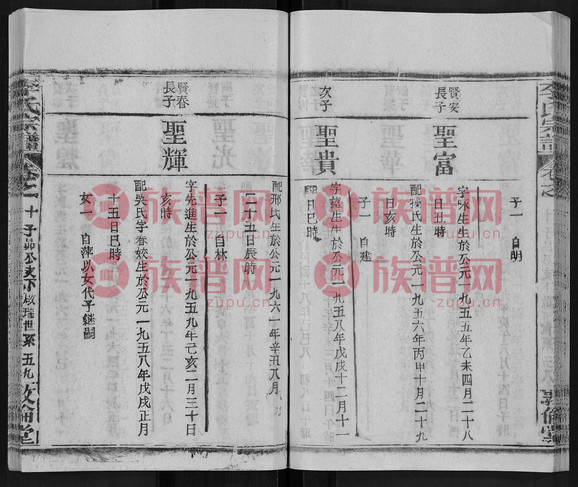 李氏宗譜
賢安
長子
聖富
字
生於公元一九五五年乙未四月二十八
日丑時
配
氏生於公元一九五六年丙申十月二十九
日亥時
子一 自明
次子
聖貴
字
生於公元一九五八年戊戌十二月十一
日巳時
子一 自建
敦倫堂
配
氏生於公元一九六一年辛丑八月
二十五日辰時
子一 自林
賢春
長子
聖輝
字先進生於公元一九五九年己亥二月三十日
亥時
配吳氏字春姣生於公元一九五八年戊戌正月
十五日巳時
女一 自萍以女代子繼嗣
李氏宗譜
卷之一
啟瑞世系
五九
敦倫堂
族谱网
zupu.cn
族谱网
zupu.cn
族谱网
zupu.cn
族谱网
zupu.cn